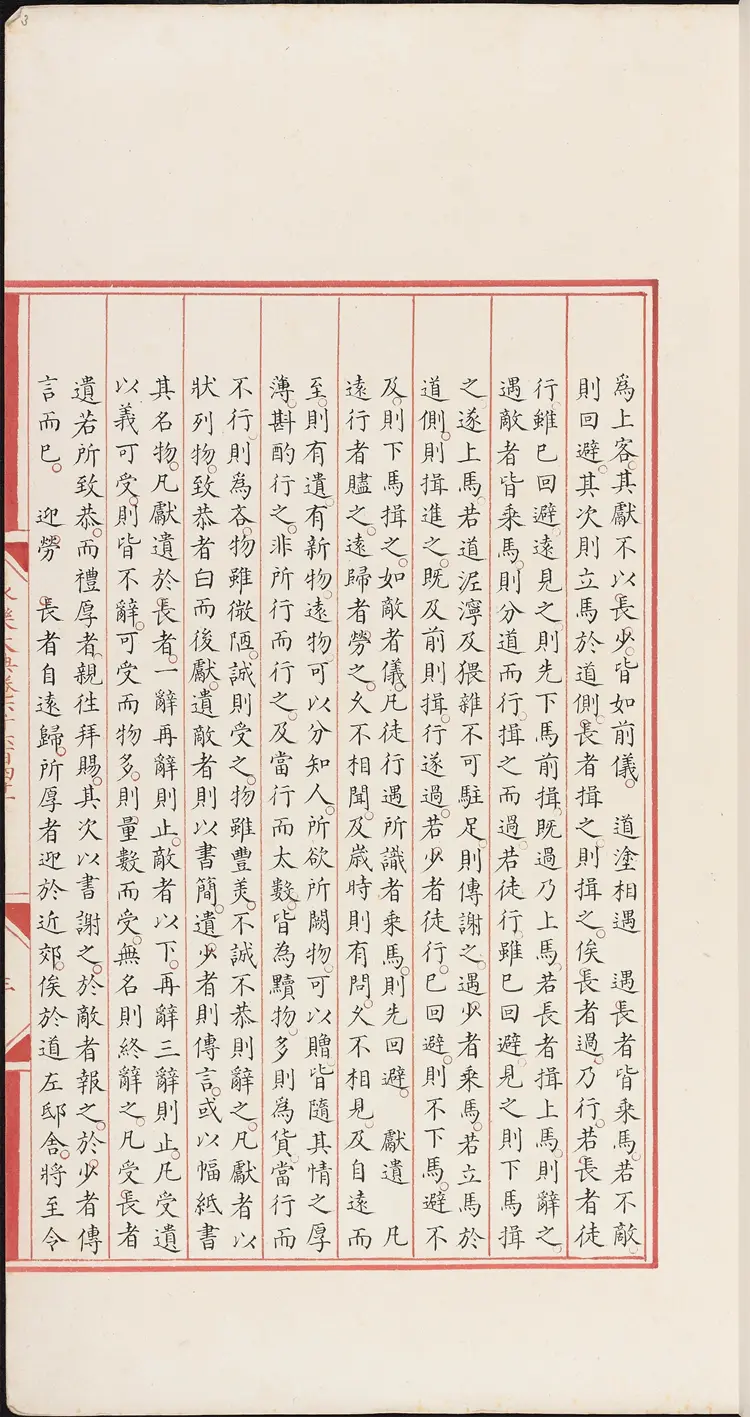 為上客。其獻不以長少。皆如前儀。 道塗相遇 遇長者皆乗馬。若不敵。
則回避。其次則立馬於道側。長者揖之。則揖之。俟長者過。乃行。若長者徒
行。雖已回避。遠見之。則先下馬前揖。既過乃上馬。若長者揖上馬。則辭之。
遇敵者皆乗馬。則分道而行。揖之而過。若徒行。雖已回避。見之則下馬揖
之。遂上馬。若道泥濘及猥雜不可駐足。則傳謝之。遇少者乗馬。若立馬於
道側。則揖進之。既及前則揖。行遂過。若少者徒行。已回避。則不下馬。避不
及。則下馬揖之。如敵者儀。凡徒行遇所識者乗馬。則先回避。 獻遺 凡
遠行者贐之。遠歸者勞之。久不相聞。及歲時則有問。久不相見。及自遠而
至。則有遺。有新物。遠物可以分知人。所欲所闕物。可以贈。皆隨其情之厚
薄。斟酌行之。非所行而行之。及當行而太數。皆為黷。物多則為貨。當行而
不行。則為吝。物雖微陋。誠則受之。物雖豐羙。不誠不恭則辭之。凡獻者以
狀列物。致恭者白而後獻。遺敵者則以書簡。遺少者則傳言。或以幅紙書
其名物。凡獻遺於長者。一辭再辭則止。敵者以下。再辭三辭則止。凡受遺
以義可受。則皆不辭。可受而物多。則量數而受。無名則終辭之。凡受長者
遺若所致恭。而禮厚者。親徃拜賜。其次以書謝之。於敵者報之。於少者傳
言而已。 迎勞 長者自遠歸。所厚者迎於近郊。俟於道左邸舍。將至令
3